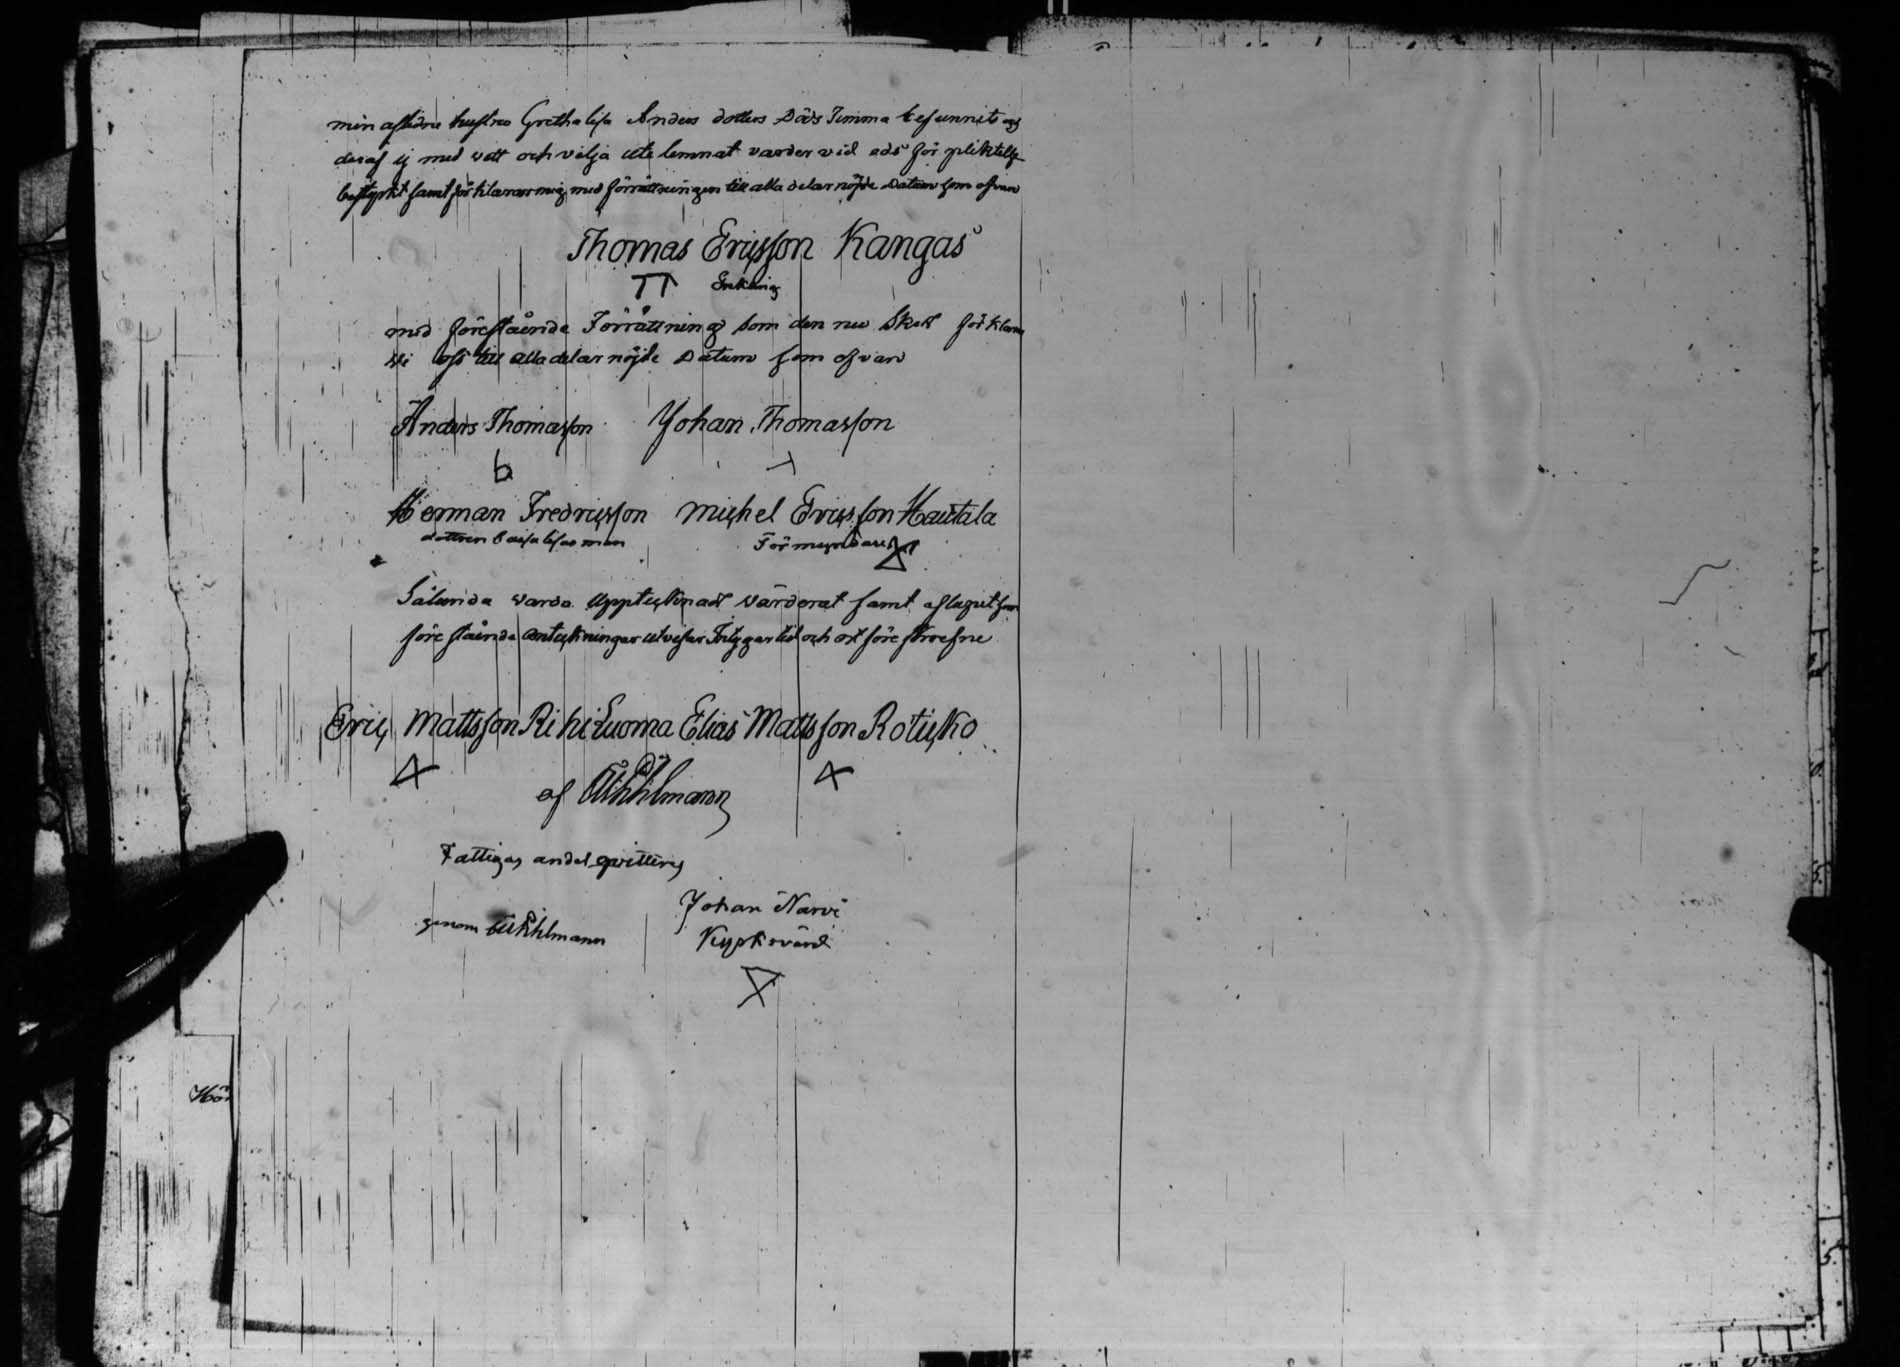 min aflidne hustrus Gretha lisa Anders dotters Döds Timma befunnits och
deraf ej med vett och vilja ute lemnat varder vid eds för pliktelse
bestyrkt samt förklarar mig med förrättningen till alla delar nöjde Datum som ofvan
Thomas Ericsson Kangas
Enkling
med förestående Förrättning som den nu Skett för klara
vi oss till alla delar nöjde Datum som ofvan
Anders Thomasson Johan Thomasson
Herman Fredricsson Michel Ericsson Hautala
dottren Caisa lisas man Förmyndare
Sålunda varda Upptecknadt värderat samt aflagut som
före stående anteckningar utvisar Intygar tid och ort före skrefne
Eric Mattsson Rihiluoma Elias Mattsson Roticko
af
Fattigas andel qvitteras
Johan Narvi
genom
Kyrkovärd
Hör
5.